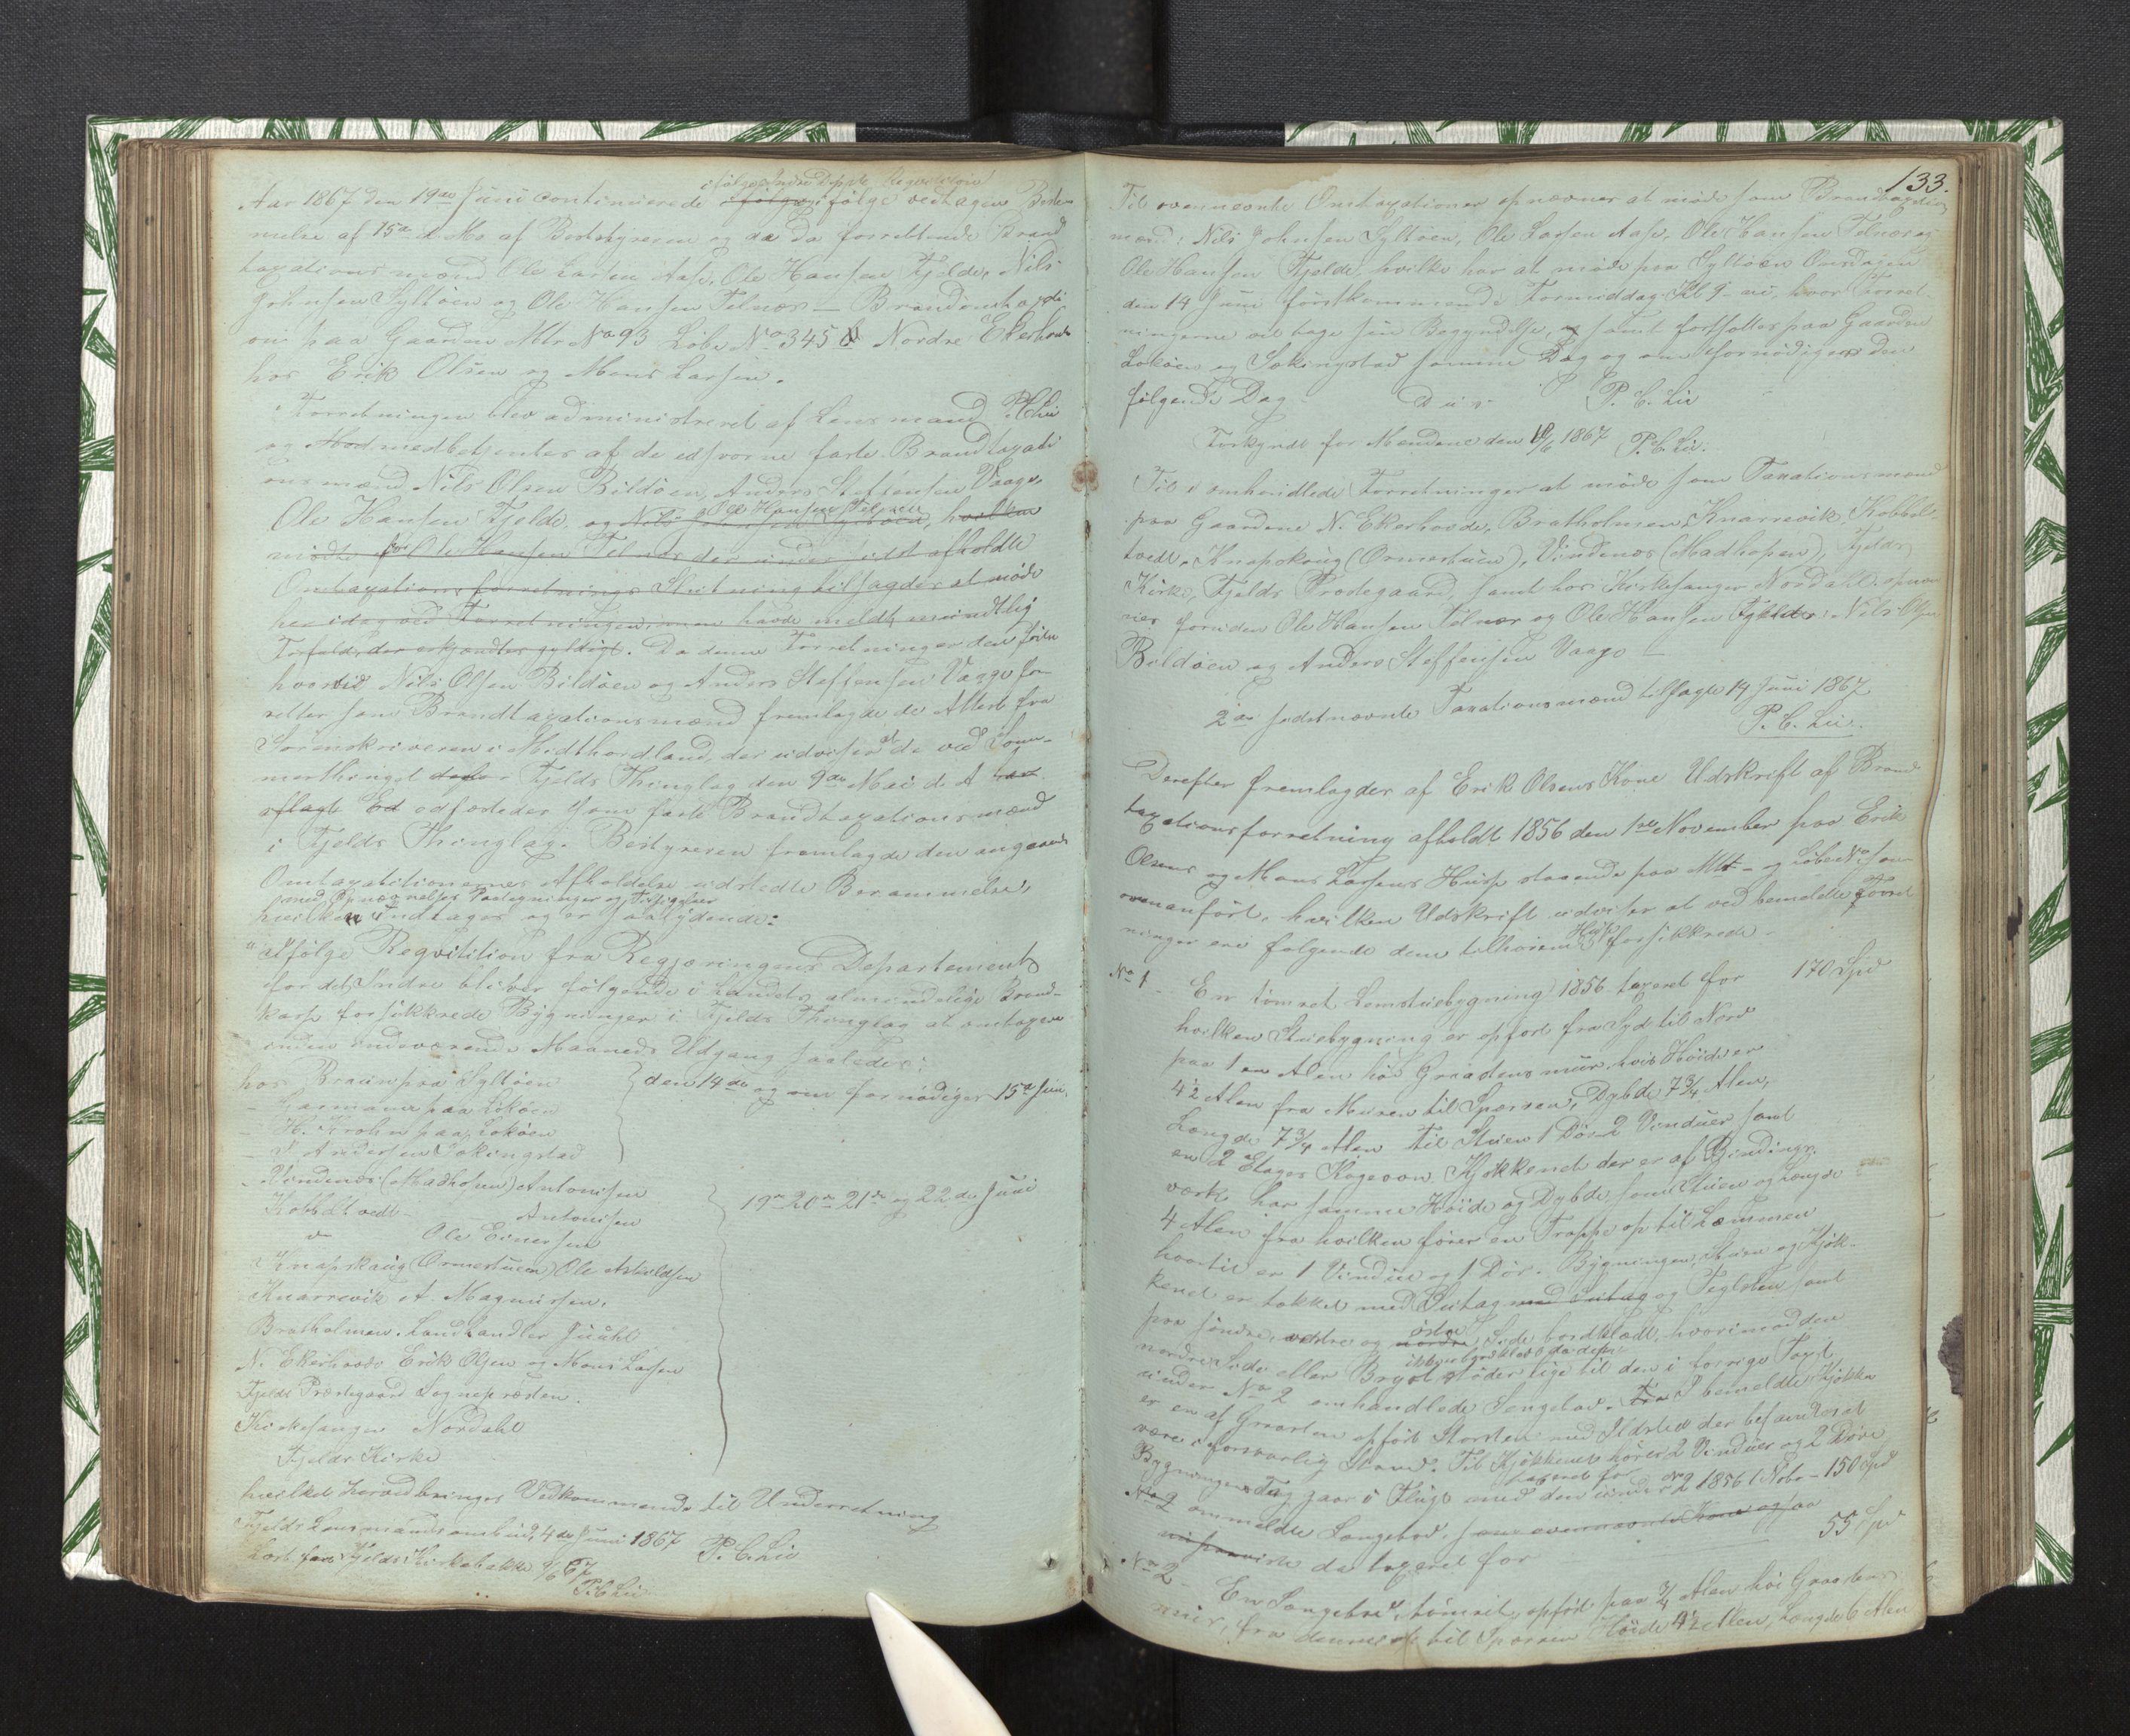 i følge Indre Depts Reqvisition
Aar 1867 den 19de Juni continuerede ifølge i følge vedtagen Bestem-
melse af 15de d. M. af Bestyreren og de da forrettende Brand
taxationsmænd Ole Larsen Aase, Ole Hansen Fjelde, Nils
Johnsen Syltöen og Ole Hansen Telnæs — Brandomtaxati
on paa Gaarden Mtr No 93 Löbe No 345 b Nordre Ekerhovd
hos Erik Olsen og Mons Larsen.
Forretningen blev administreret af Lensmand P. C. Lie
og Mod medbetjentes af de edsvorne faste Brandtaxati
onsmænd Nils Olsen Bildöen, Anders Steffensen Vaage,
Ole Hansen Telnæs
Ole Hansen Fjelde og Nils Johnsen Syltöen, hvilken
mödte for Ole Hansen Telnæs der under sidst afholdte
Omtaxationsforretnings Slutning tilsagdes at möde
her idag ved Forretningen, men havde meldt mundtlig
Forfald, der erkjendtes gyldigt. Da denne Forretning er den förste
hvorved Nils Olsen Bildöen og Anders Steffensen Vaage for
retter som Brandtaxationsmænd fremlagde de Attest fra
Sorenskriveren i Midthordland, der udviser at de ved Som-
merthinget for Fjelds Thinglag den 9de Mai d. A. har
aflagt Ed edfæstedes som faste Brandtaxationsmænd
i Fjelds Thinglag. Bestyreren fremlagde den angaaende
Omtaxationernes Afholdelse udstedte Berammelse,
med Opnævnelser Paategninger og Tilsigelser
hvilken indtages og er saalydende:
"Ifølge Reqvisition fra Regjeringens Departement
for det Indre bliver følgende i Landets almindelige Brand-
kasse forsikkrede Bygninger i Fjelds Thinglag at omtaxere
inden indeværende Maaneds Udgang saaledes:
hos Braun paa Syltöen
- Garmann paa Loköen
- H. Krohn paa Loköen
- Andersen Sekingstad
den 14de og om fornödiges 15de Juni,
- Vindenæs (Madhopen) Antonisen
Kobbeltvedt - Antonisen
do Ole Einersen
Knapskaug (Ormestuen) Ole Askildsen
Knarrevik A. Magnusen.
Bratholmen. Landhandler Juuhl
N. Ekerhovd Erik Olsen og Mons Larsen
Fjelds Præstegaard Sognepræsten.
Kirkesanger Nordahl
Fjelds Kirke
19de 20de 21de og 22de Juni
hvilket herved bringes Vedkommende til Underretning
Fjelds Lensmandsombud, 4de Juni 1867 P. C. Lie
Læst for Fjelds Kirkebakke 9/6 67
P. C. Lie
133.
Til ovennævnte Omtaxationer opnævnes at möde som Brandtaxations
mænd: Nils Johnsen Syltöen, Ole Larsen Aase, Ole Hansen Telnæs og
Ole Hansen Fjelde, hvilke har at möde paa Syltöen Onsdagen
den 14 Juni förstkommende Formiddag Kl 9 , hvor Forret
ningerne vil tage sin Begyndelse, og samt fortsættes paa Gaarden
Loköen og Sekingstad samme Dag og om fornödiges den
fölgende Dag. D. u. s. P. C. Lie
Forkyndt for Mændene den 10/6 1867 P. C. Lie.
Til i omhandlede Forretninger at möde som Taxationsmænd
paa Gaardene N. Ekerhovde, Bratholmen, Knarrevik, Kobbel-
tvedt, Knapskaug (Ormestuen), Vindenæs (Madhopen), Fjelds
Kirke, Fjelds Præstegaard, samt hos Kirkesanger Nordahl opnæv
nes foruden Ole Hansen Telnæs og Ole Hansen Fjelde: Nils Olsen
Bildöen og Anders Steffensen Vaage —
2de sidstnævnte Taxationsmænd tilsagte 14 Juni 1867
P. C. Lie.
Derefter fremlagdes af Erik Olsens Kone Udskrift af Brand
taxationsforretning afholdt 1856 den 1ste November paa Erik
Olsens og Mons Larsens Huse staaende paa Mtr - og Löbe No som
ovenanfört, hvilken Udskrift udviser at ved bemeldte Forret
ninger ere følgende dem tilhørende Huse forsikkrede -
No 1 - En tömret Lemstuebygning 1856 taxeret for 170 Spd
hvilken Stuebygning er opfört fra Syd til Nord
paa 1 en Alen höi Graastensmur, hvis Höide er
4½ Alen fra Muren til Sparren, Dybde 7¾ Alen,
Længde 7¾ Alen til Stuen 1 Dör 2 Vinduer samt
en 2 Etages Kogeovn. Kjökkenet der er af Bindings-
værk har samme Höide og Dybde som Stuen og Længde
4 Alen fra hvilken förer en Trappe op til Lemmen
hvortil er 1 Vindue og 1 Dör. Bygningen, Stuen og Kjök-
kenet er tækket med Sutag med sutag og Teglsten samt
paa söndre, vestre og nordre östre Side bordklædt, hvorimod den
nordre Side eller Bryst ikke er bordklædt da den stöder lige til den i forrige Taxt
under No 2 omhandlede Sengebod. Fra I bemeldte Kjökken
er en af Graasten opfört Skorsten med Ildsted der befandtes at
være i forsvarlig Stand. Til Kjökkenet hörer 2 Vinduer og 2 Döre
Bygningens Tag gaar i Flugt med den under No 2 1856 taxeret for 150 Spd
No 2 ommeldte Sengebod, som ovennævnte Kone ogsaa
da taxeret for 55 Spd
No 2 - En Sengebod, tömret, opfört paa ¾ Alen höi Graastens
mur, fra denne til Sparren Höide 4½ Alen, Længde 6 Alen